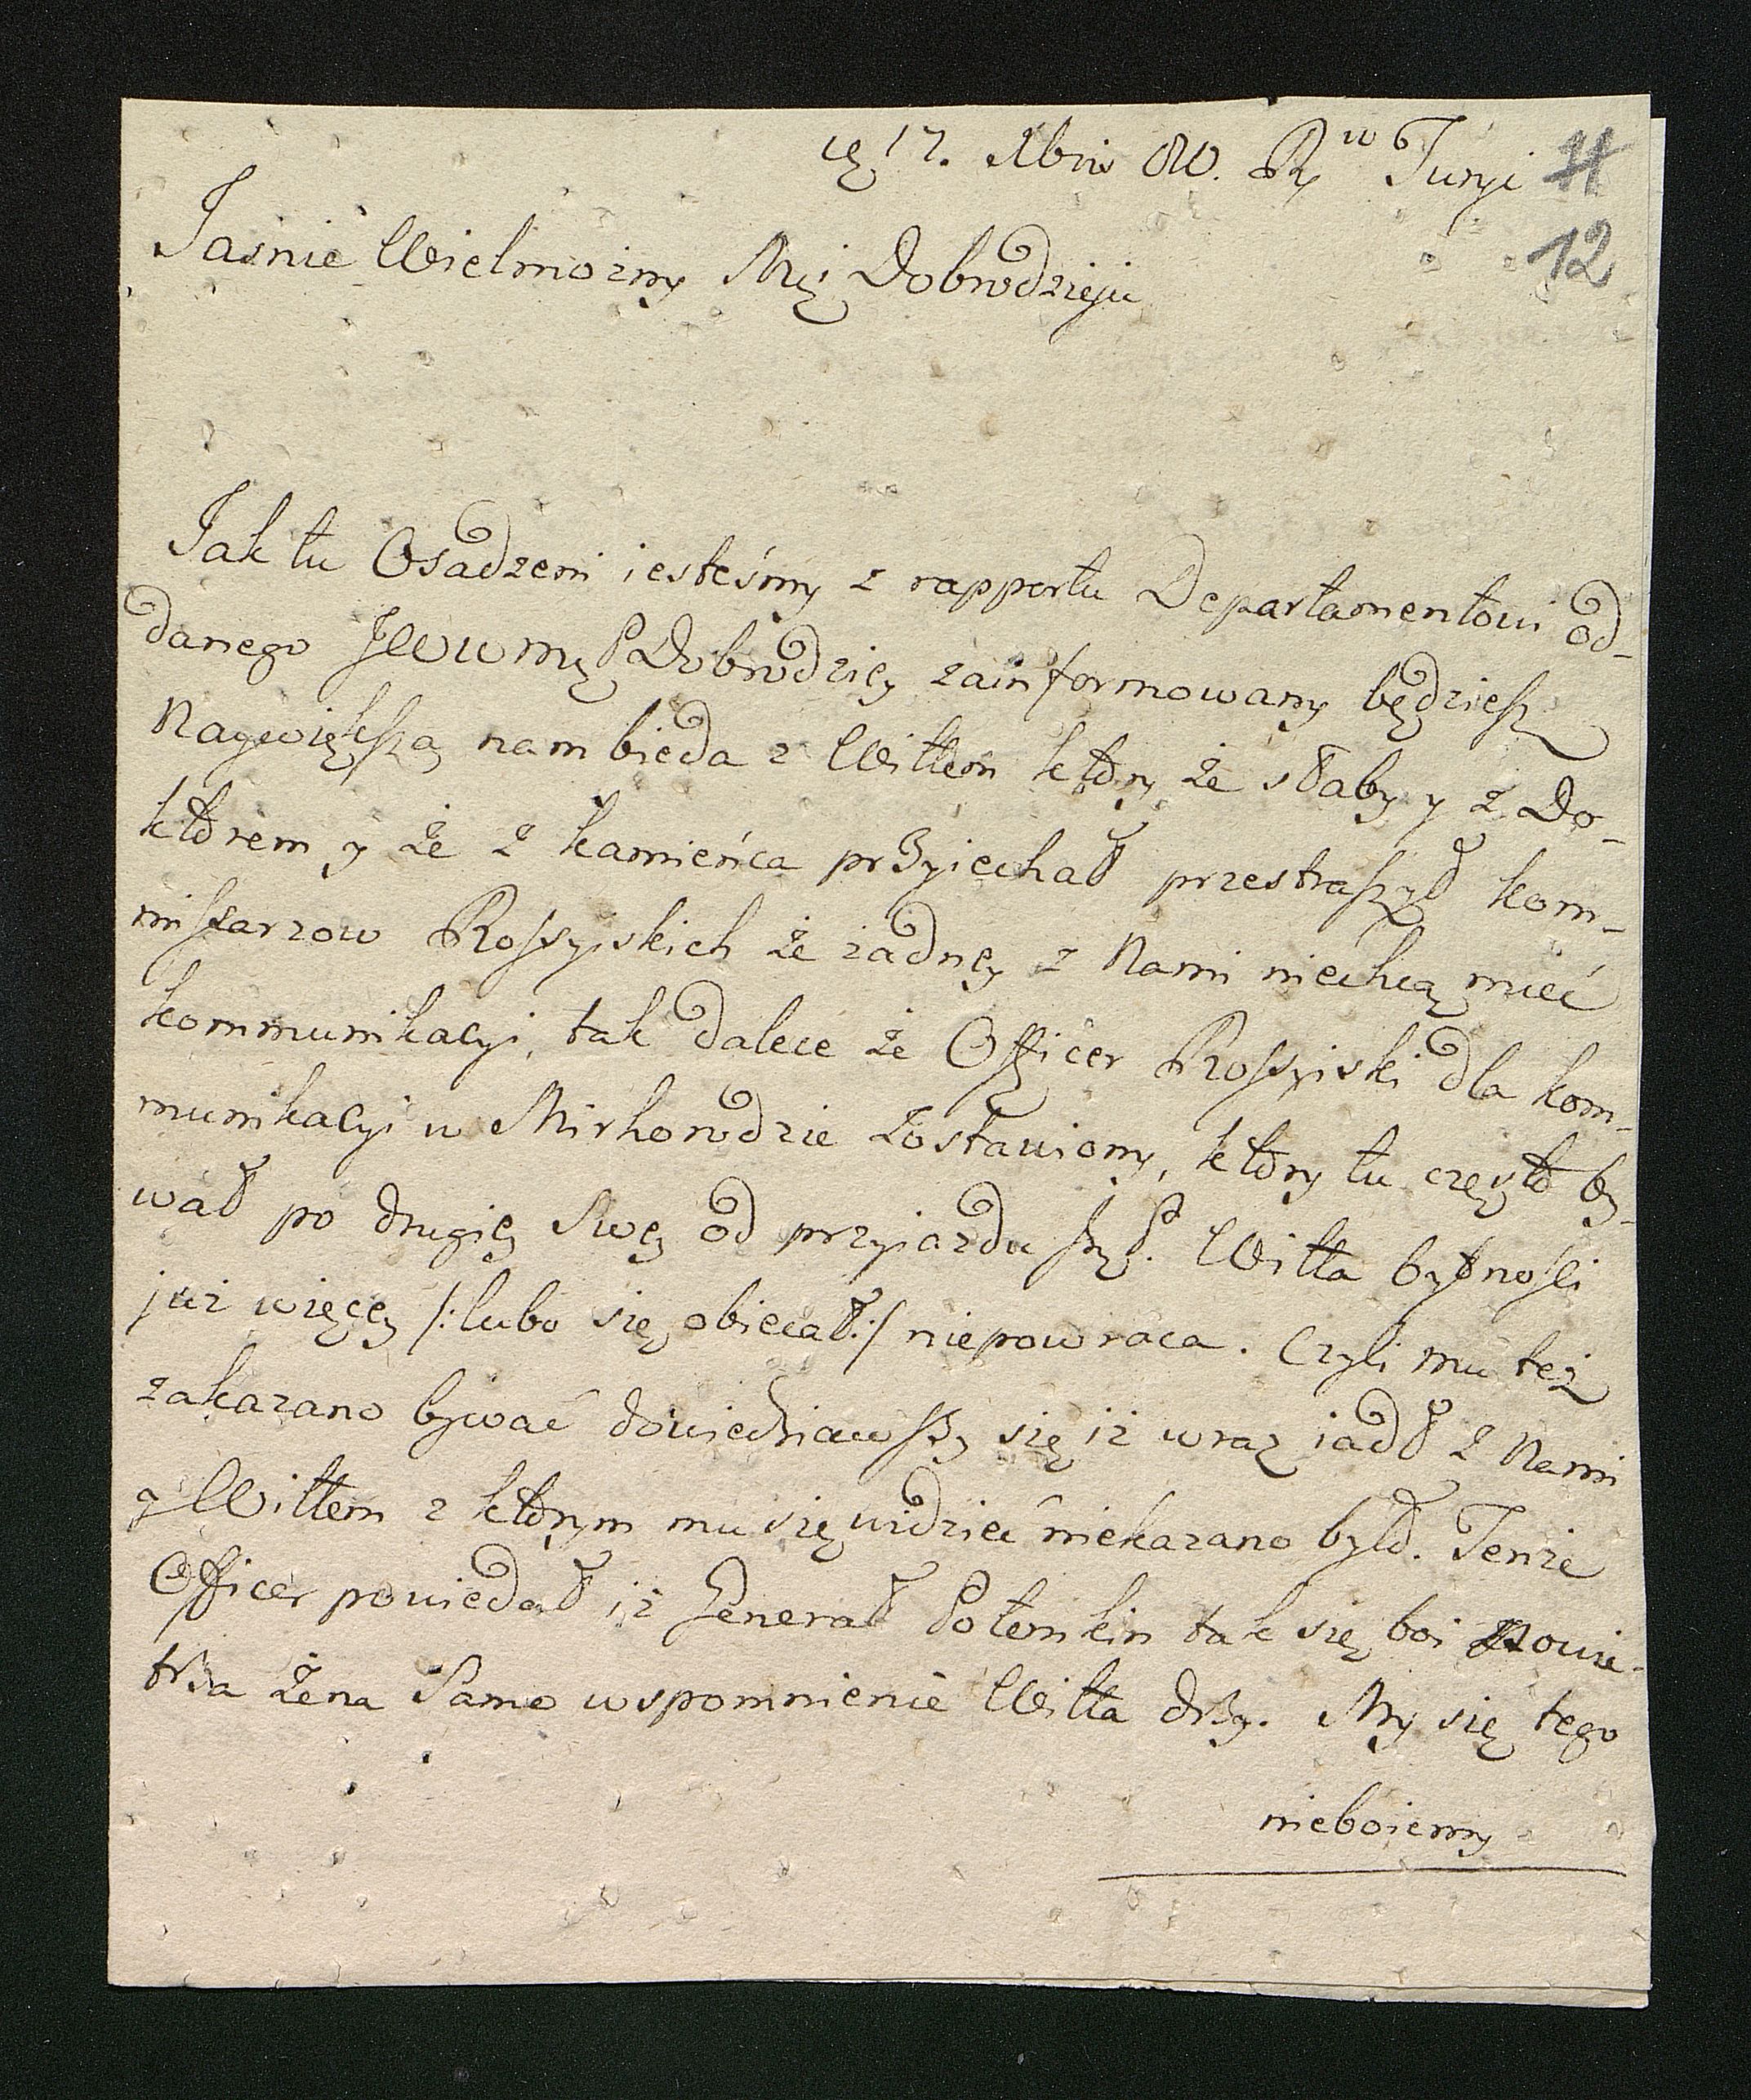 17. Xbris 80. R. w Turyi 11
12
Jasnie Wielmożny Mći Dobrodzieju
Jak tu Osadzeni iesteśmy z rapportu Departamentowi od-
danego JWWMP Dobrodziey zainformowany będziesz
Naywiększa nam bieda z Wittem ktory że słaby y z Do-
ktorem y że z Kamieńca przyiechał przestraszył kom-
missarzow Rossyiskich że żadney z Nami niechcą mieć
kommunikacyi, tak dalece że Officer Rossyiski dla kom-
munikacyi w Mirhorodzie zostawiony, ktory tu często by-
wał po drugiey swey od przyiazdu JmP. Witta bytnosci
już więcey /: lubo się obiecał :/ niepowraca. Czyli mu też
zakazano bywać dowiedziawszy się iż wraz iadł z Nami
y Wittem z ktorym mu się widzieć niekazano było. Tenże
Officer powiedał iż Generał Potemkin tak się boi Powie-
trza że na Samo wspomnienie Witta drży. My się tego
nieboiemy